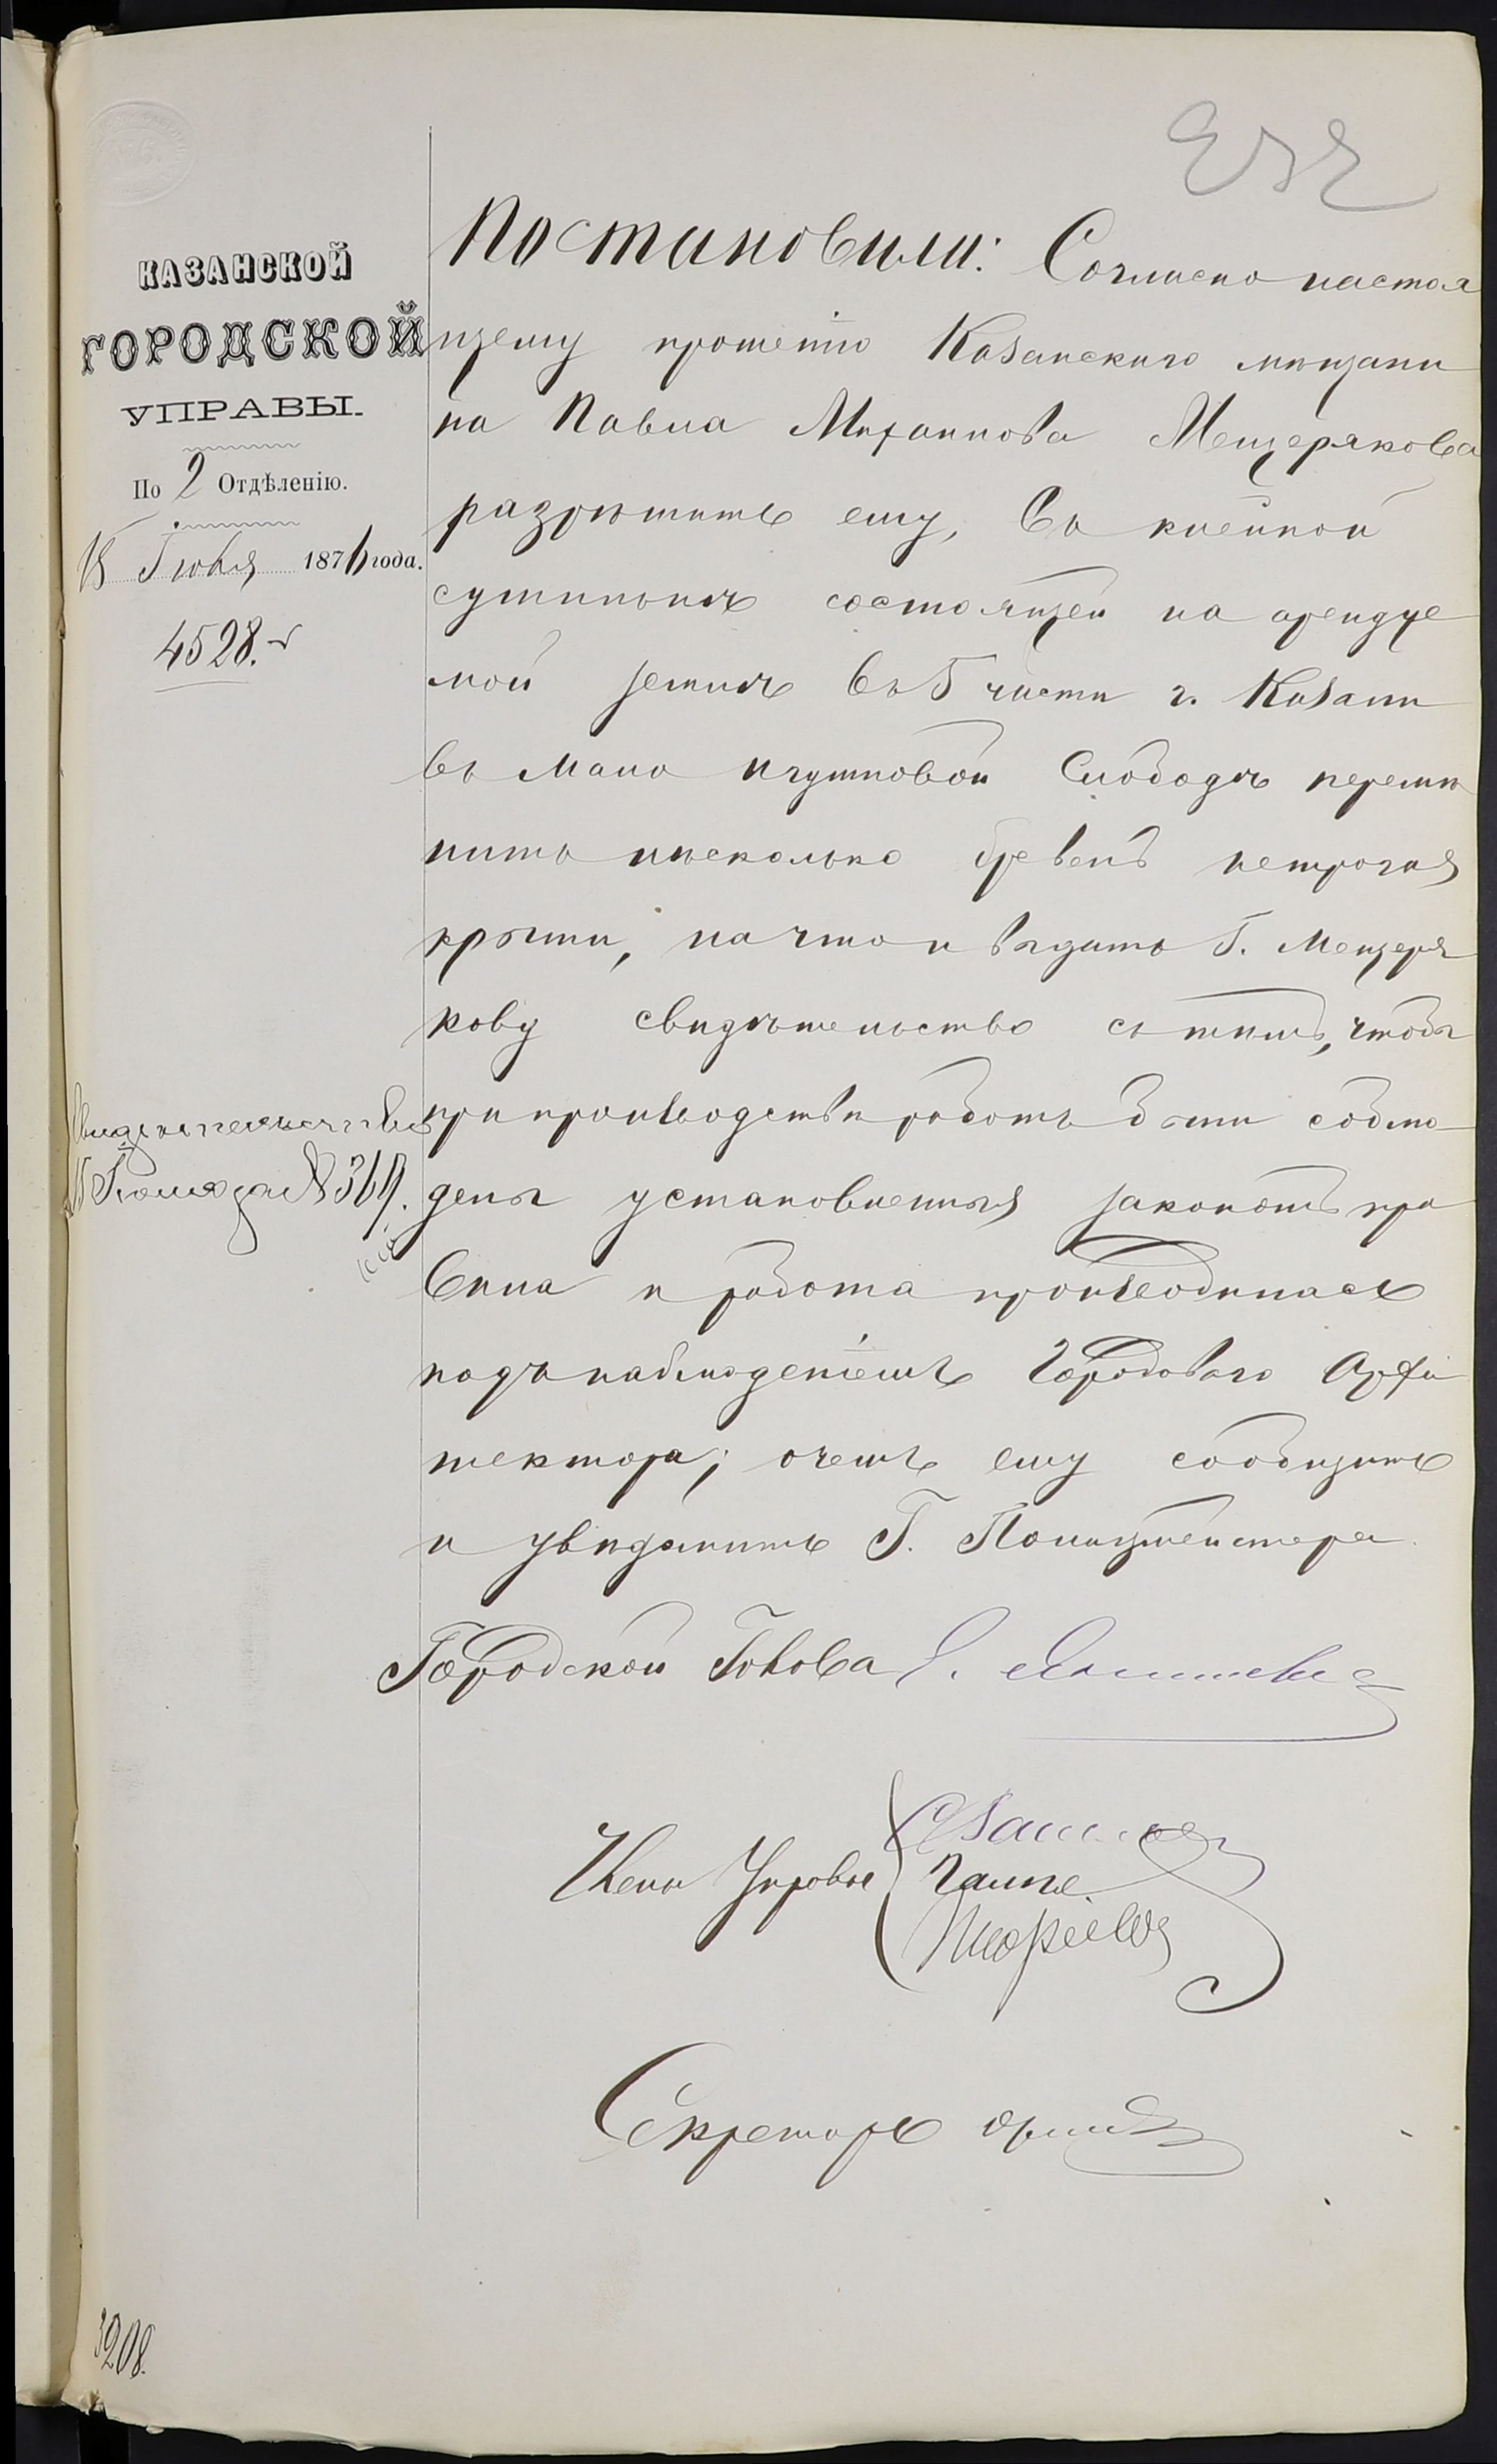 КАЗАНСКОЙ
ГОРОДСКОЙ
УПРАВЫ.
По 2 Отдѣленію.
15 Іюля 1876 года.
4528.
Постановили: Согласно настоя
щему прошенію Казанскаго мѣщани
на Павла Михаилова Мещерякова
разрѣшить ему, въ клейной
сушильнѣ состоящей на арендуе
мой землѣ въ 5 части г. Казани
въ Мало Игумновой Слободѣ перемѣ
нить нѣсколько бревенъ нетрогая
крыши, на что и выдать Г. Мещеря
кову свидѣтельство съ тѣмъ, чтобы
при производствѣ работъ были соблю
дены установленныя закономъ пра
вила и работа производилась
подъ наблюденіемъ Городоваго Архи
тектора; о чемъ ему сообщить
и увѣдомить Г. Полицмейстера.
Свидетельство
15 Іюля за № 369.
Городской Голова
Члены Управы
Секретарь
3208.